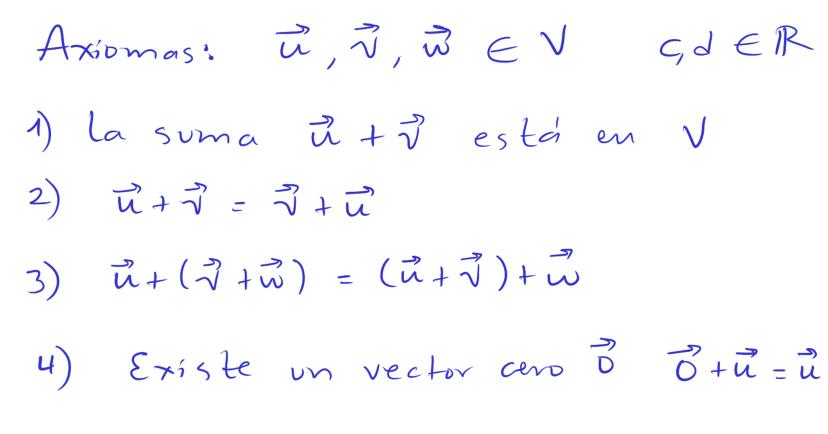 Axiomas: u⃗, v⃗, w⃗ ∈ V c,d ∈ ℝ
1) La suma u⃗ + v⃗ está en V
2) u⃗ + v⃗ = v⃗ + u⃗
3) u⃗ + (v⃗ + w⃗) = (u⃗ + v⃗) + w⃗
4) Existe un vector cero 0⃗ 0⃗ + u⃗ = u⃗